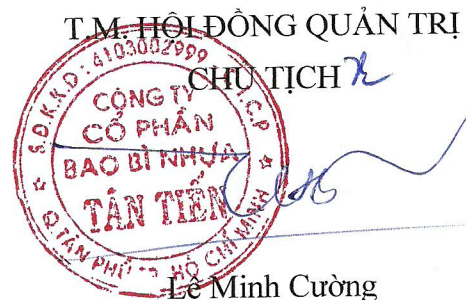 T.M. HỘI ĐỒNG QUẢN TRỊ
CHỦ TỊCH
S.Đ.K.K.D: 4103002999
C.T.C.P
CÔNG TY
CỔ PHẦN
BAO BÌ NHỰA
TÂN TIẾN
Q.TÂN PHÚ TP HỒ CHÍ MINH
Lê Minh Cường